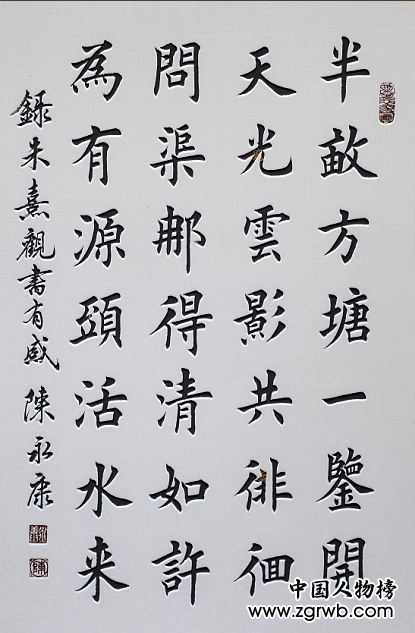 半畝方塘一鑒開
天光雲影共徘徊
問渠那得清如許
為有源頭活水来
錄朱熹觀書有感 陳永康
中国人物榜
www.zgrwb.com